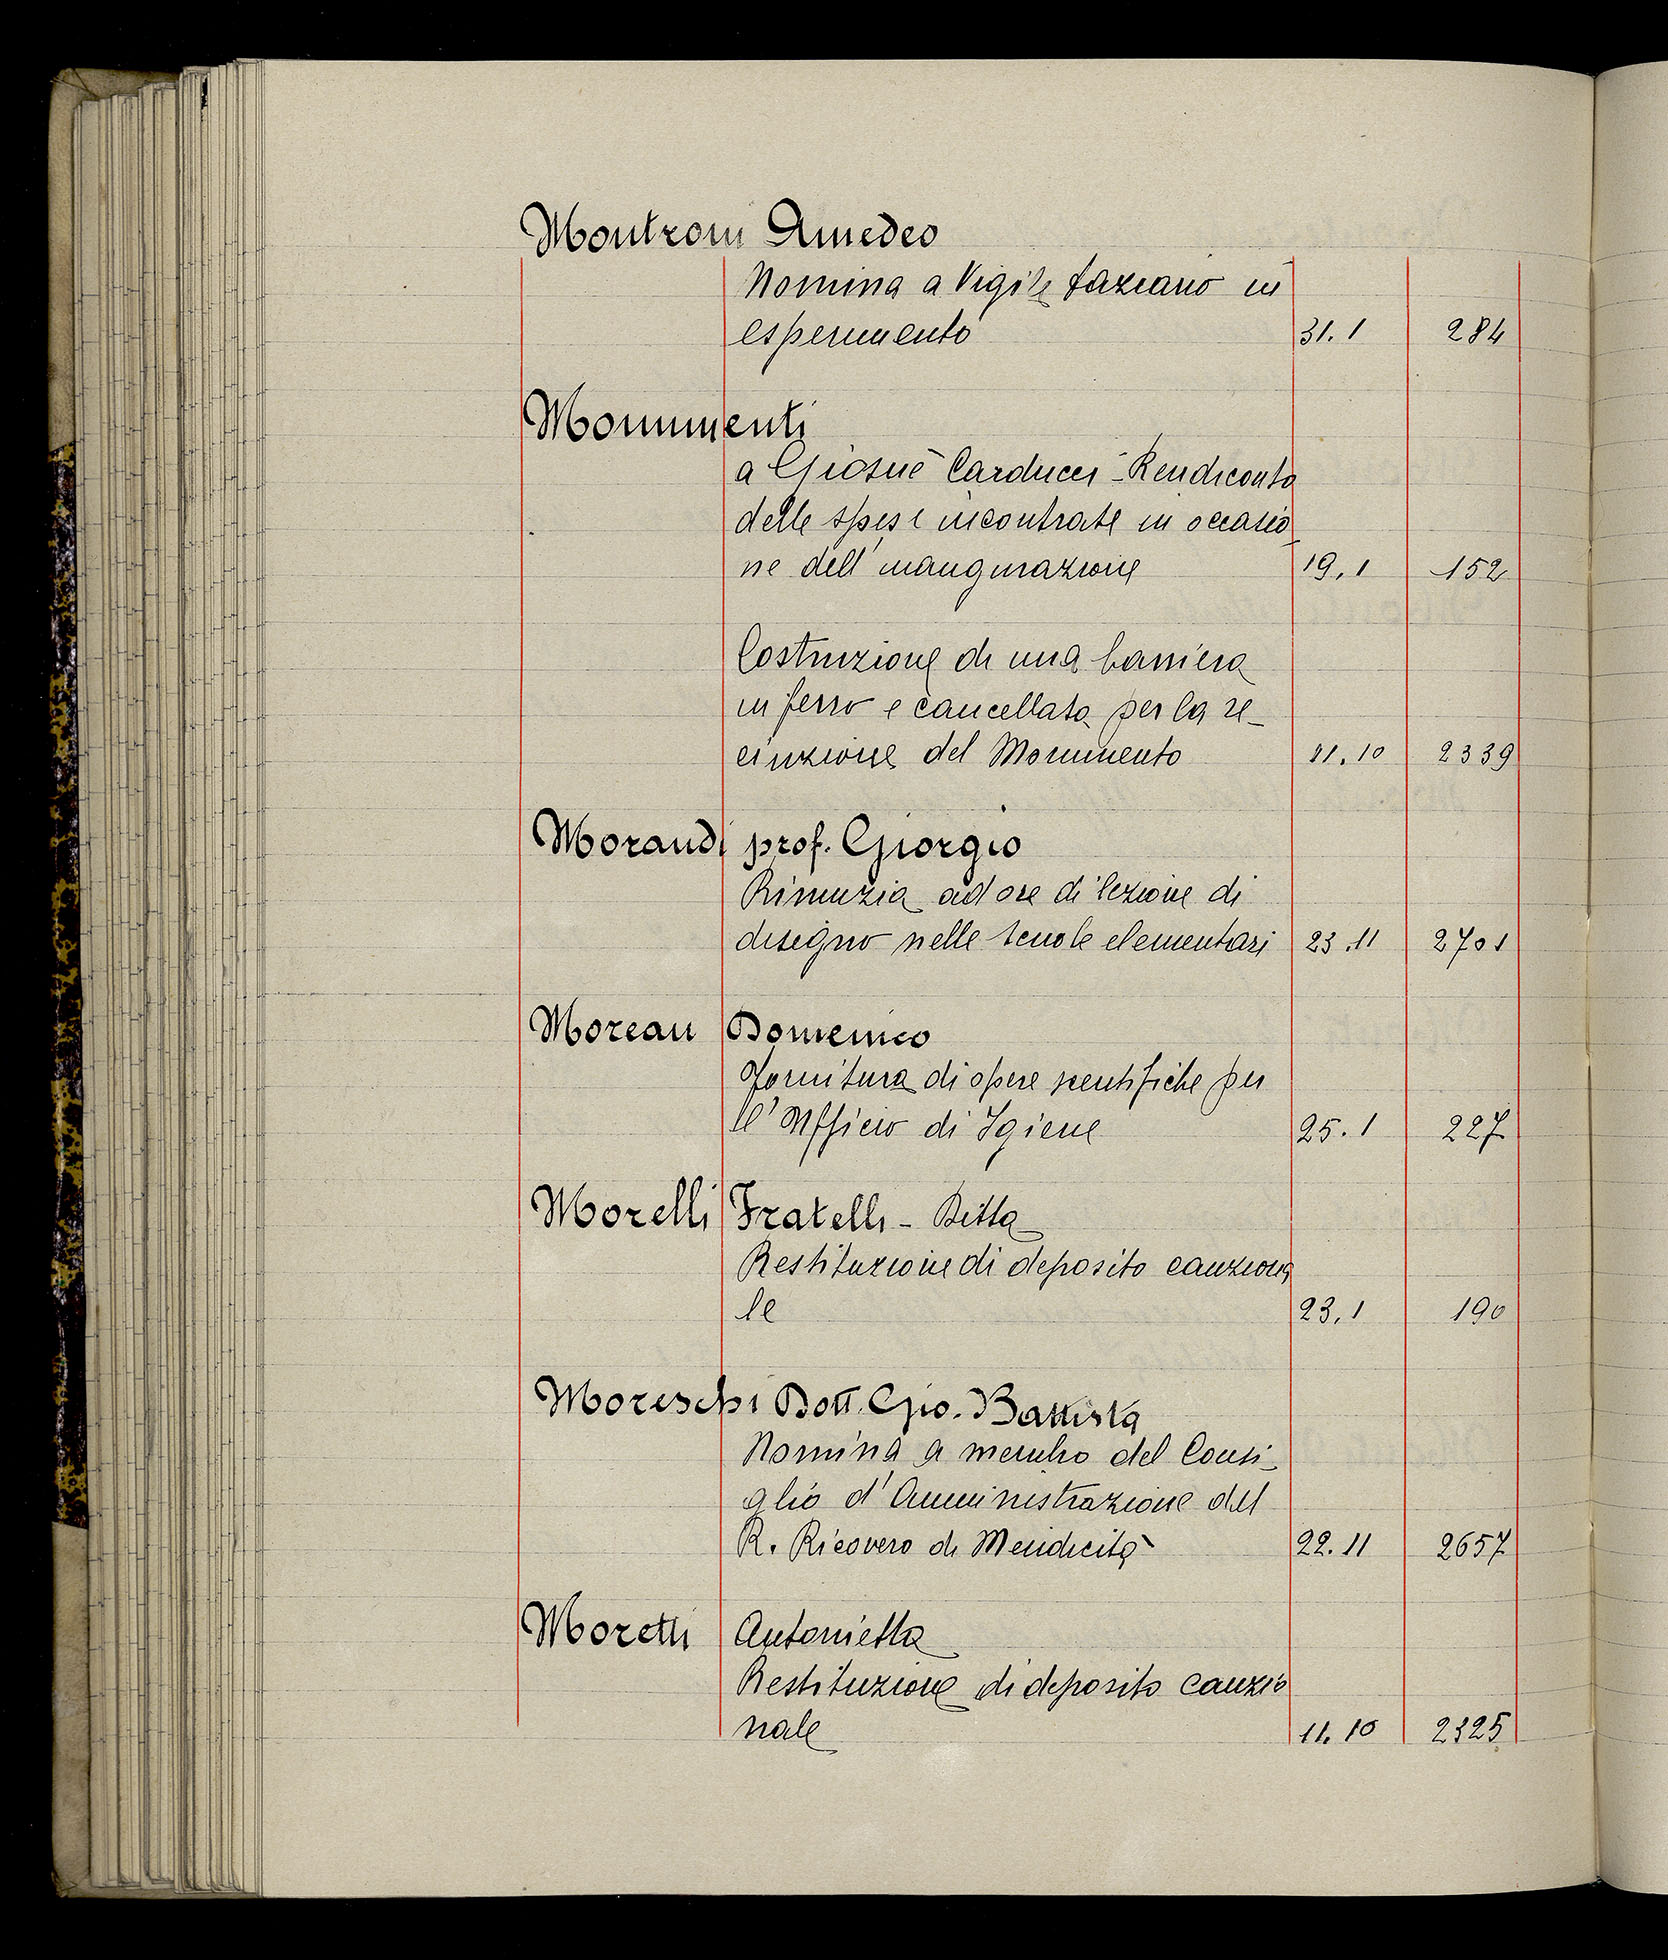 Montroni Amedeo
Nomina a Vigile Daziario in
esperimento 31.1 284
Monumenti
a Giosuè Carducci - Rendiconto
delle spese incontrate in occasio
ne dell'inaugurazione 19.1 152
Costruzione di una barriera
in ferro e cancellata per la re-
cinzione del Monumento 11.10 2339
Morandi prof. Giorgio
Rinunzia ad ore di lezione di
disegno nelle scuole elementari 23.11 2701
Moreau Domenico
Fornitura di opere scentifiche per
l'Ufficio di Igiene 25.1 227
Morelli Fratelli - Ditta
Restituzione di deposito cauziona
le 23.1 190
Moreschi Dott. Gio. Battista
Nomina a membro del Consi-
glio d'Amministrazione del
R. Ricovero di Mendicità 22.11 2657
Moretti Antonietta
Restituzione di deposito cauzio
nale 11.10 2325